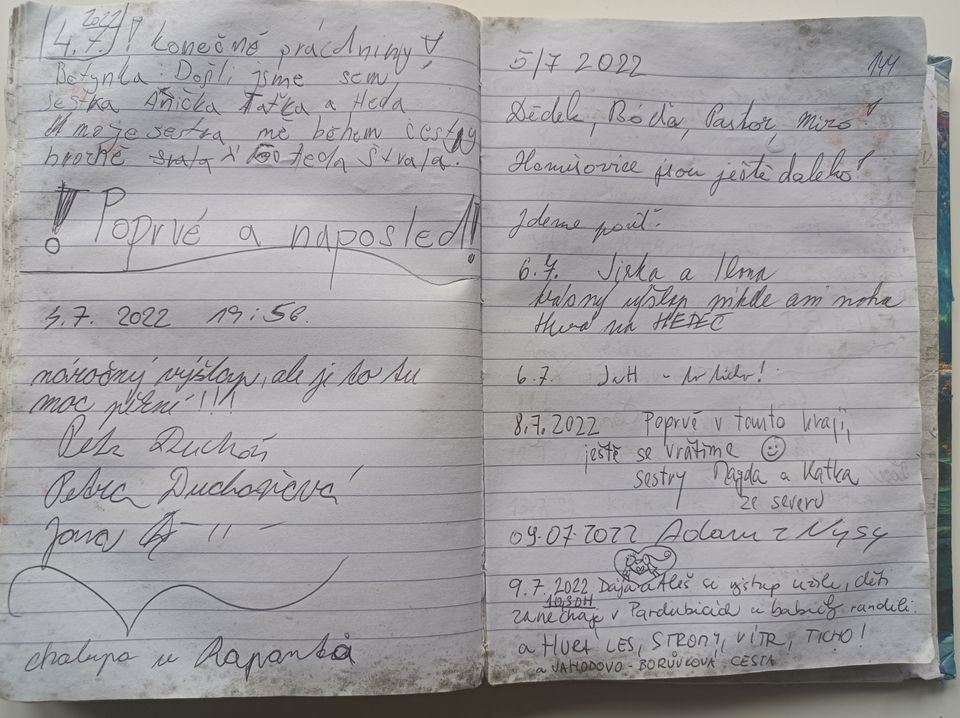 2022
4.7.! Konečně prázdniny!
Betynka: Došli jsme sem
sestra Anička Taťka a Heda
A moje sestra mě během cesty
hrozně srala teda štvala.
! Poprvé a naposled!!
5.7. 2022 19:56.
náročný výšlap, ale je to tu
moc pěkné !!!
Petr Duchoň
Petra Duchoňová
Jana " –
chalupa u Rapantů
5/7 2022 144
Dědek, Bóďa, Pastor, Miro!
Homišovice jsou ještě daleko!
Jdeme pařit.
6.7. Jirka a Ilona
krásný výšlap nikde ani noha
Hurá na HEDEČ
6.7. J+H – to ticho!
8.7.2022 Poprvé v tomto kraji,
ještě se vrátíme ☺
sestry Magda a Katka
ze severu
09.07.2022 Adam z Nysy
9.7. 2022 Dája a Aleš si výstup užili, děti
10,30H
zanechaje v Pardubicích u babičky randili
a HURÁ LES, STROMY, VÍTR, TICHO!
a JAHODOVO-BORŮVKOVÁ CESTA